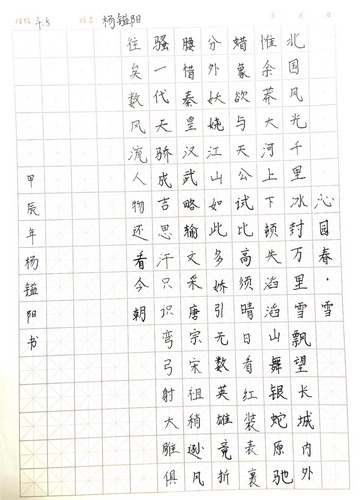 4.5 杨镒阳
沁园春·雪
北国风光千里冰封万里雪飘望长城内外
惟余莽大河上下顿失滔滔山舞银蛇原驰
蜡象欲与天公试比高须晴日看红装表裹
分外妖娆江山如此多娇引无数英雄竞折
腰惜秦皇汉武略输文采唐宗宋祖稍逊风
骚一代天骄成吉思汗只识弯弓射大雕俱
往矣数风流人物还看今朝
甲辰年杨镒阳书